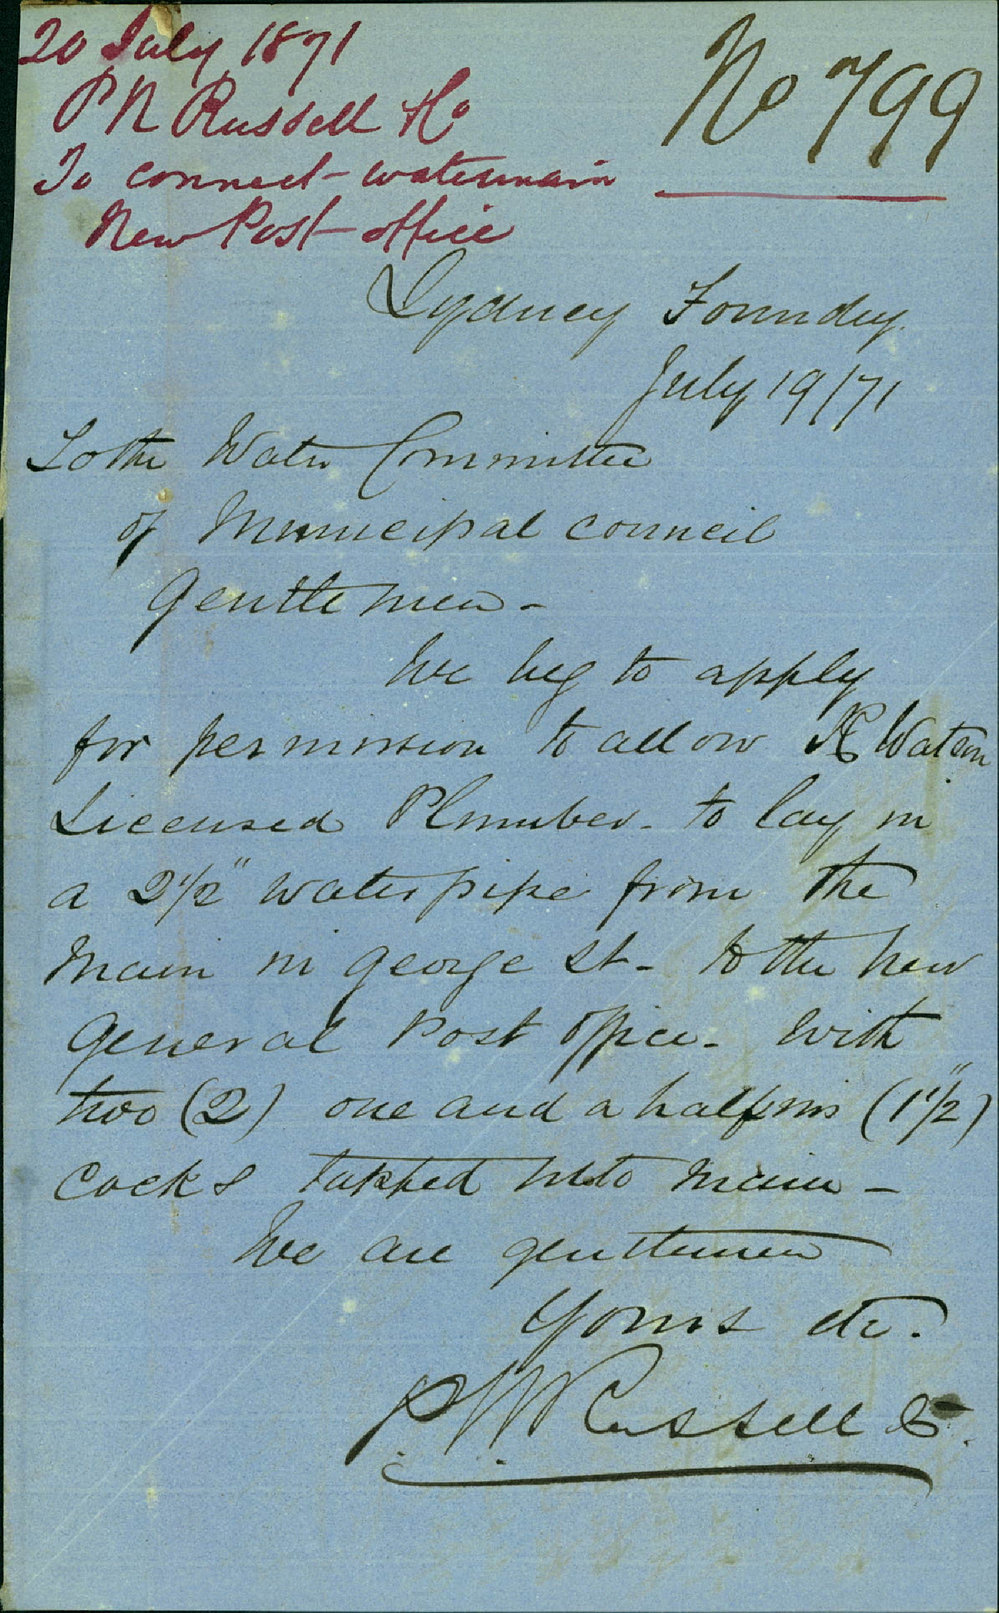 20 July 1871
P N Russell & Co
To connect watermain
New Post office
No 799
Sydney Foundry.
July 19/71
To the Water Committee
of Municipal council
Gentlemen -
We beg to apply
for permission to allow Watson
Licensed Plumber - to lay in
a 2½" water pipe from the
Main in George St - to the new
General Post Office - with
two (2) one and a half ins (1½")
cocks tapped into main -
We are gentlemen
Yours etc.
P. N. Russell & Co.